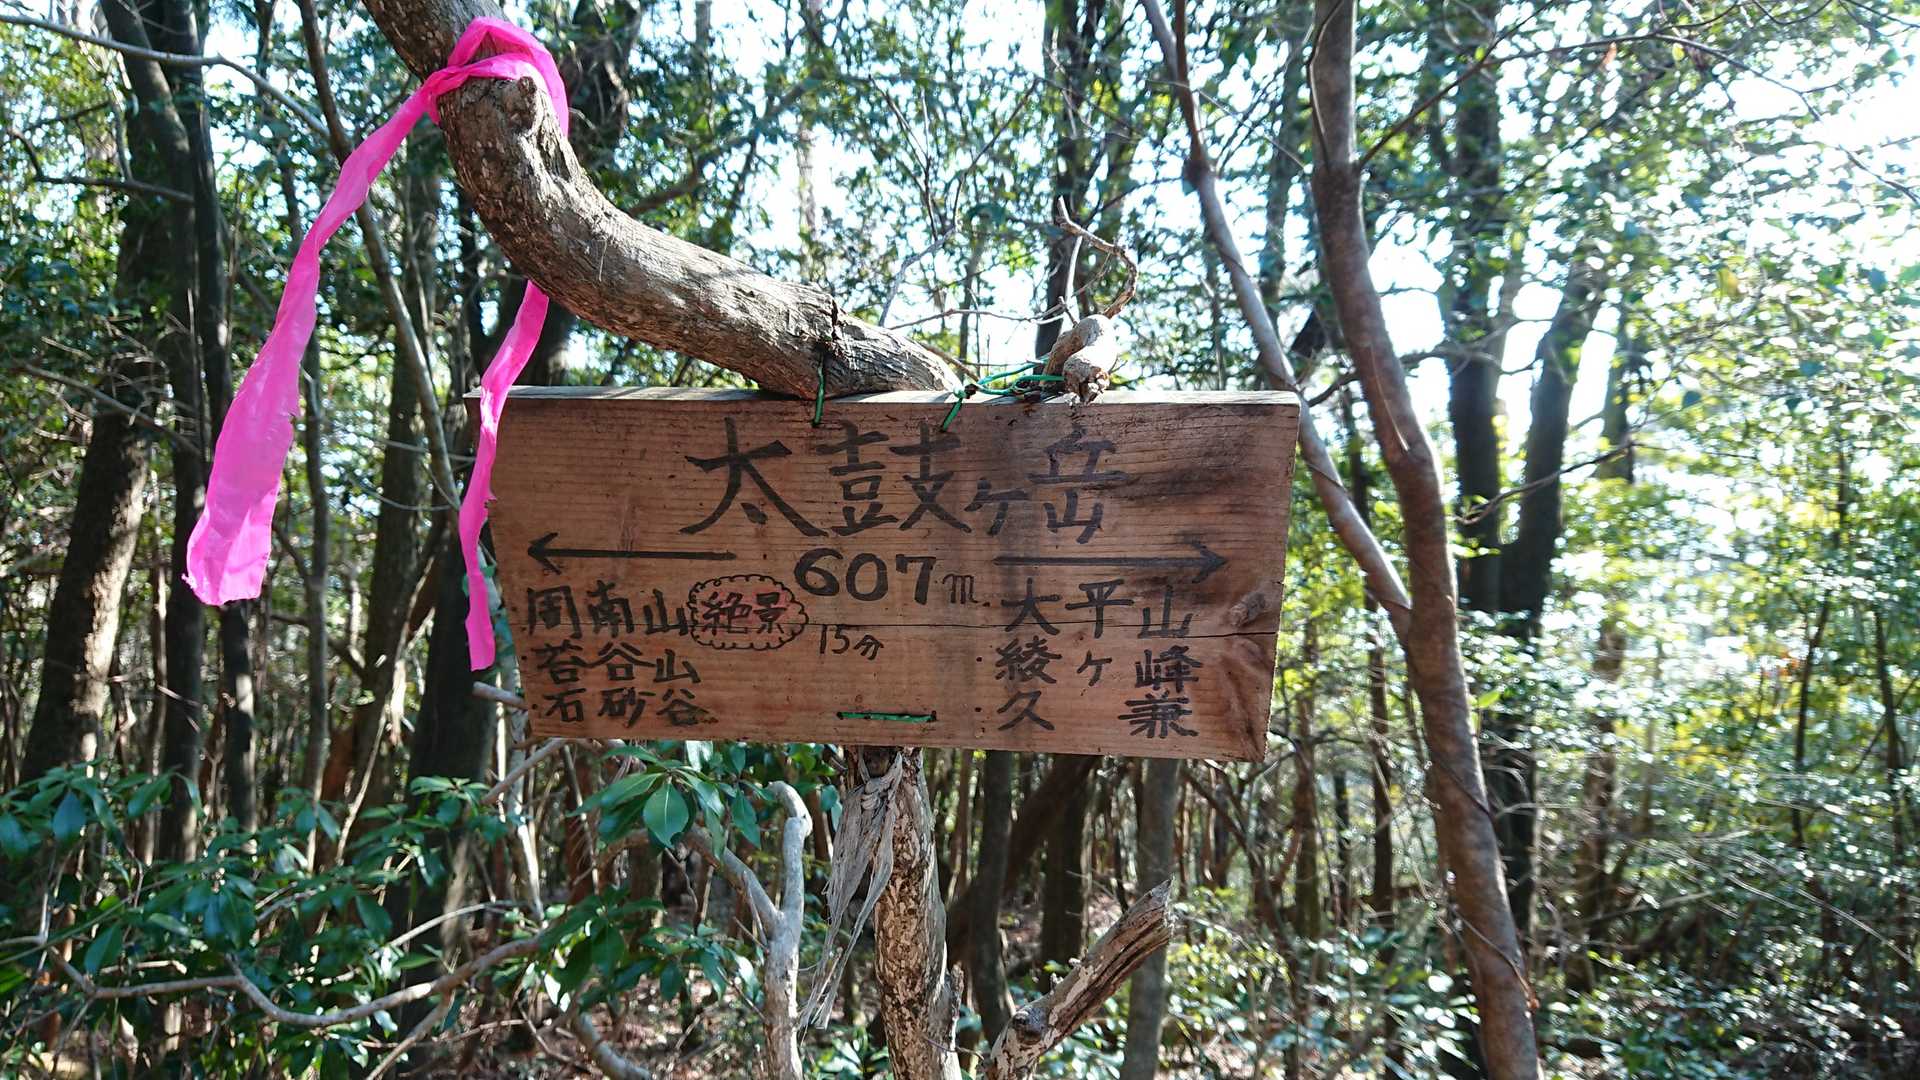 太鼓ヶ岳
← 607m →
周南山 絶景 15分
苔谷山
石砂谷
大平山
綾ヶ峰
久兼